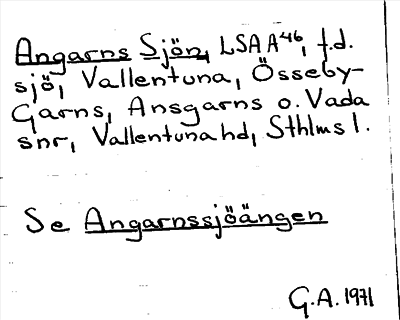 Angarns Sjön, LSA A46, f.d.
sjö, Vallentuna, Össeby-
Garns, Angarns o. Vada
snr, Vallentuna hd, Sthlms l.
Se Angarnssjöängen
G.A. 1971